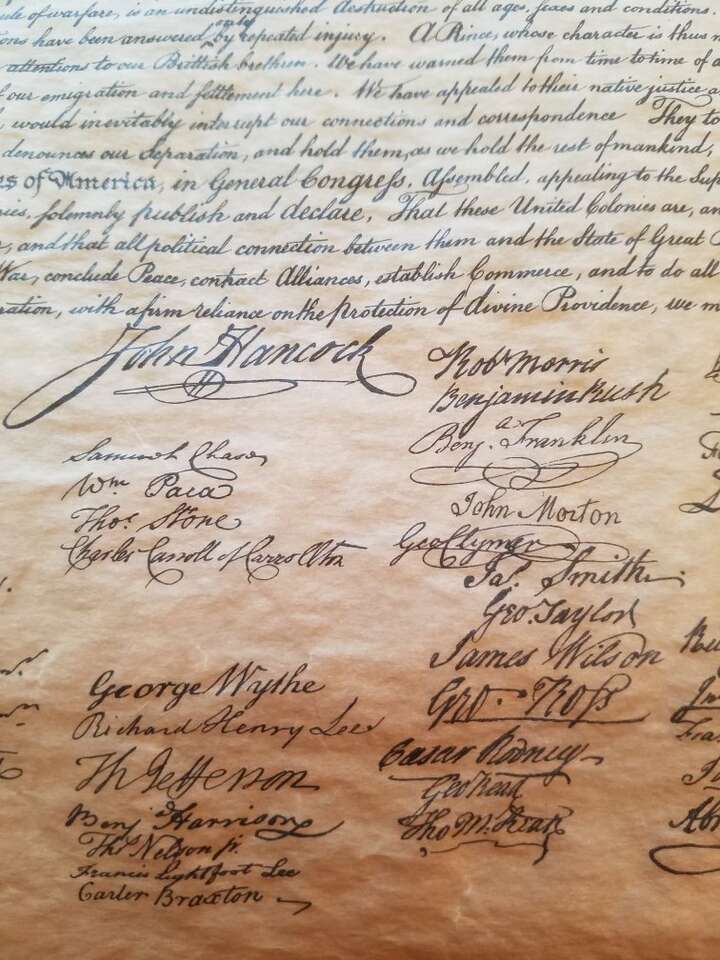 rule of warfare, is an undistinguished destruction of all ages, sexes and conditions.
only
ions have been answered by repeated injury. A Prince, whose character is thus
attentions to our Brittish brethren. We have warned them from time to time of
of our emigration and settlement here. We have appealed to their native justice
would inevitably interrupt our connections and correspondence They
denounces our Separation, and hold them, as we hold the rest of mankind,
es of America, in General Congress, Assembled, appealing to the Sup
ies, solemnly publish and declare, That these United Colonies are, an
, and that all political connection between them and the State of Great
War, conclude Peace, contract Alliances, establish Commerce, and to do all
ration, with a firm reliance on the protection of divine Providence, we m
John Hancock
Samuel Chase
Wm Paca
Thos Stone
Charles Carroll of Carrollton
George Wythe
Richard Henry Lee
Th Jefferson
Benj Harrison
Thos Nelson jr.
Francis Lightfoot Lee
Carter Braxton
Robt Morris
Benjamin Rush
Benja Franklin
John Morton
Geo Clymer
Jas. Smith
Geo. Taylor
James Wilson
Geo. Ross
Caesar Rodney
Geo Read
Tho M:Kean